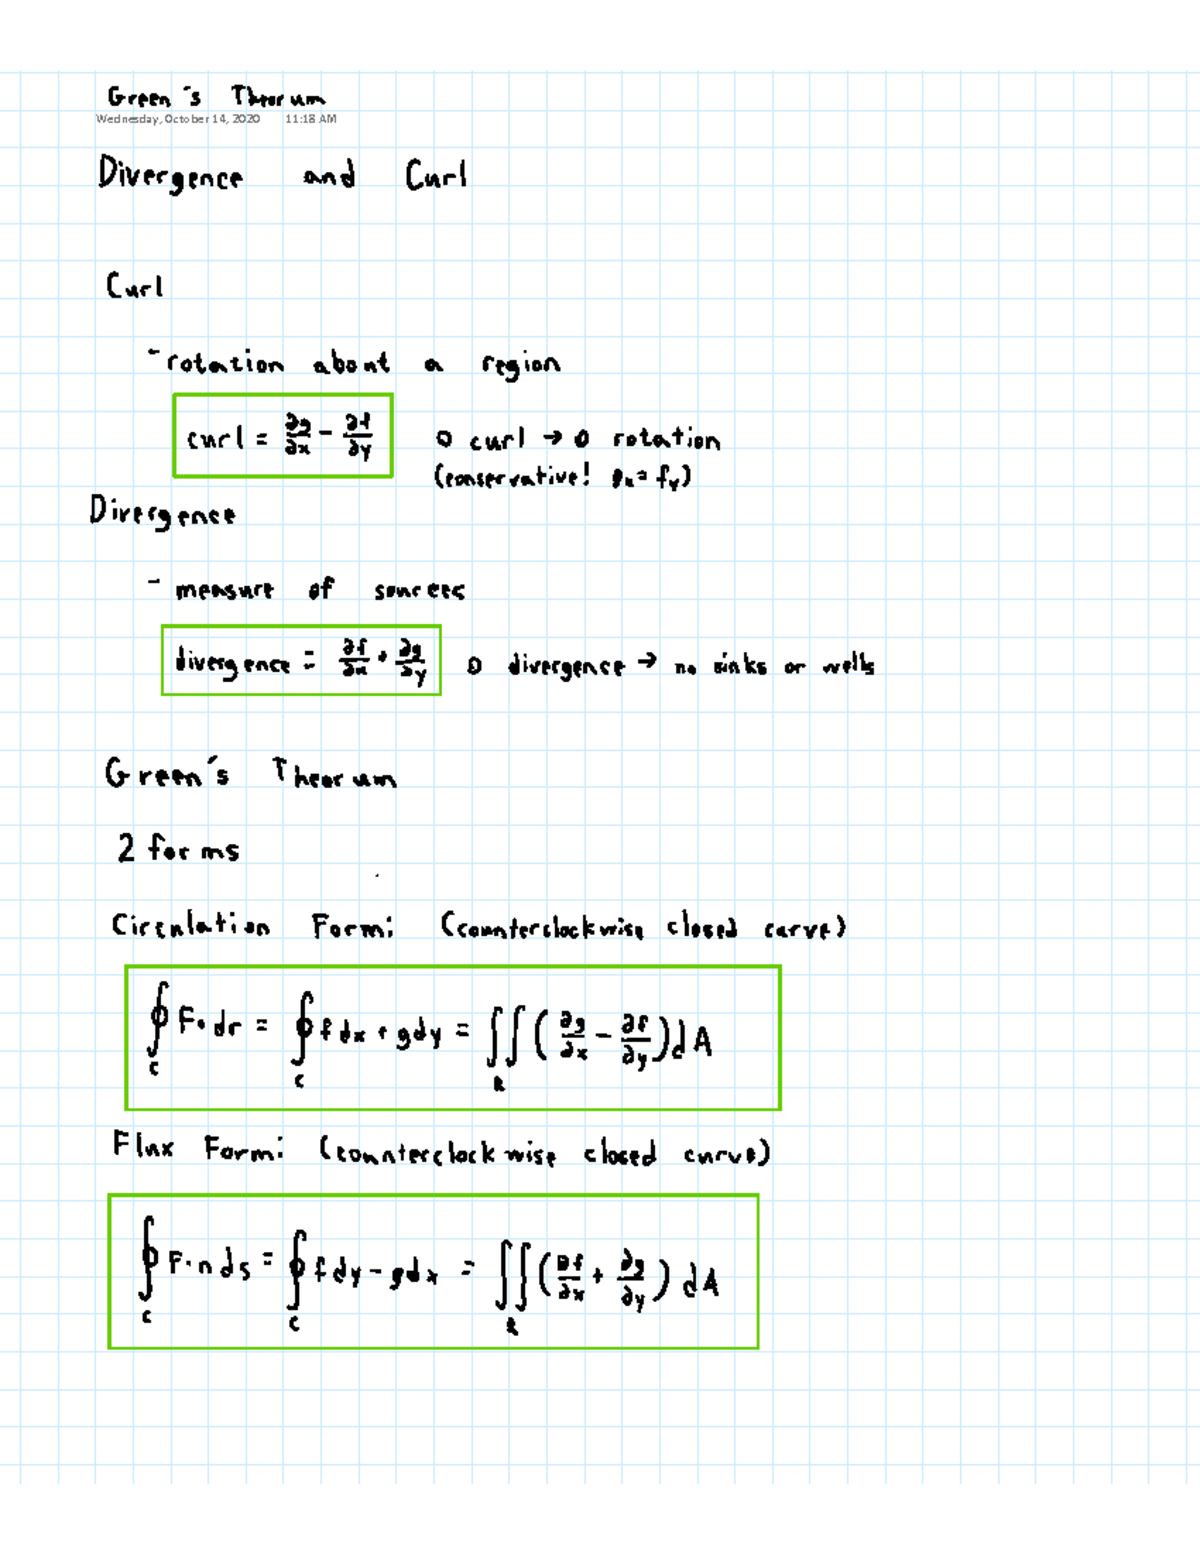 Green's Theorum
Wednesday, October 14, 2020 11:18 AM
Divergence and Curl
Curl
- rotation about a region
curl = ∂g/∂x - ∂f/∂y 0 curl → 0 rotation
(conservative! gx = fy)
Divergence
- measure of sources
divergence = ∂f/∂x + ∂g/∂y 0 divergence → no sinks or wells
Green's Theorum
2 forms
Circulation Form: (counterclockwise closed curve)
∮C F·dr = ∮C f dx + g dy = ∬R (∂g/∂x - ∂f/∂y) dA
Flux Form: (counterclockwise closed curve)
∮C F·n ds = ∮C f dy - g dx = ∬R (∂f/∂x + ∂g/∂y) dA